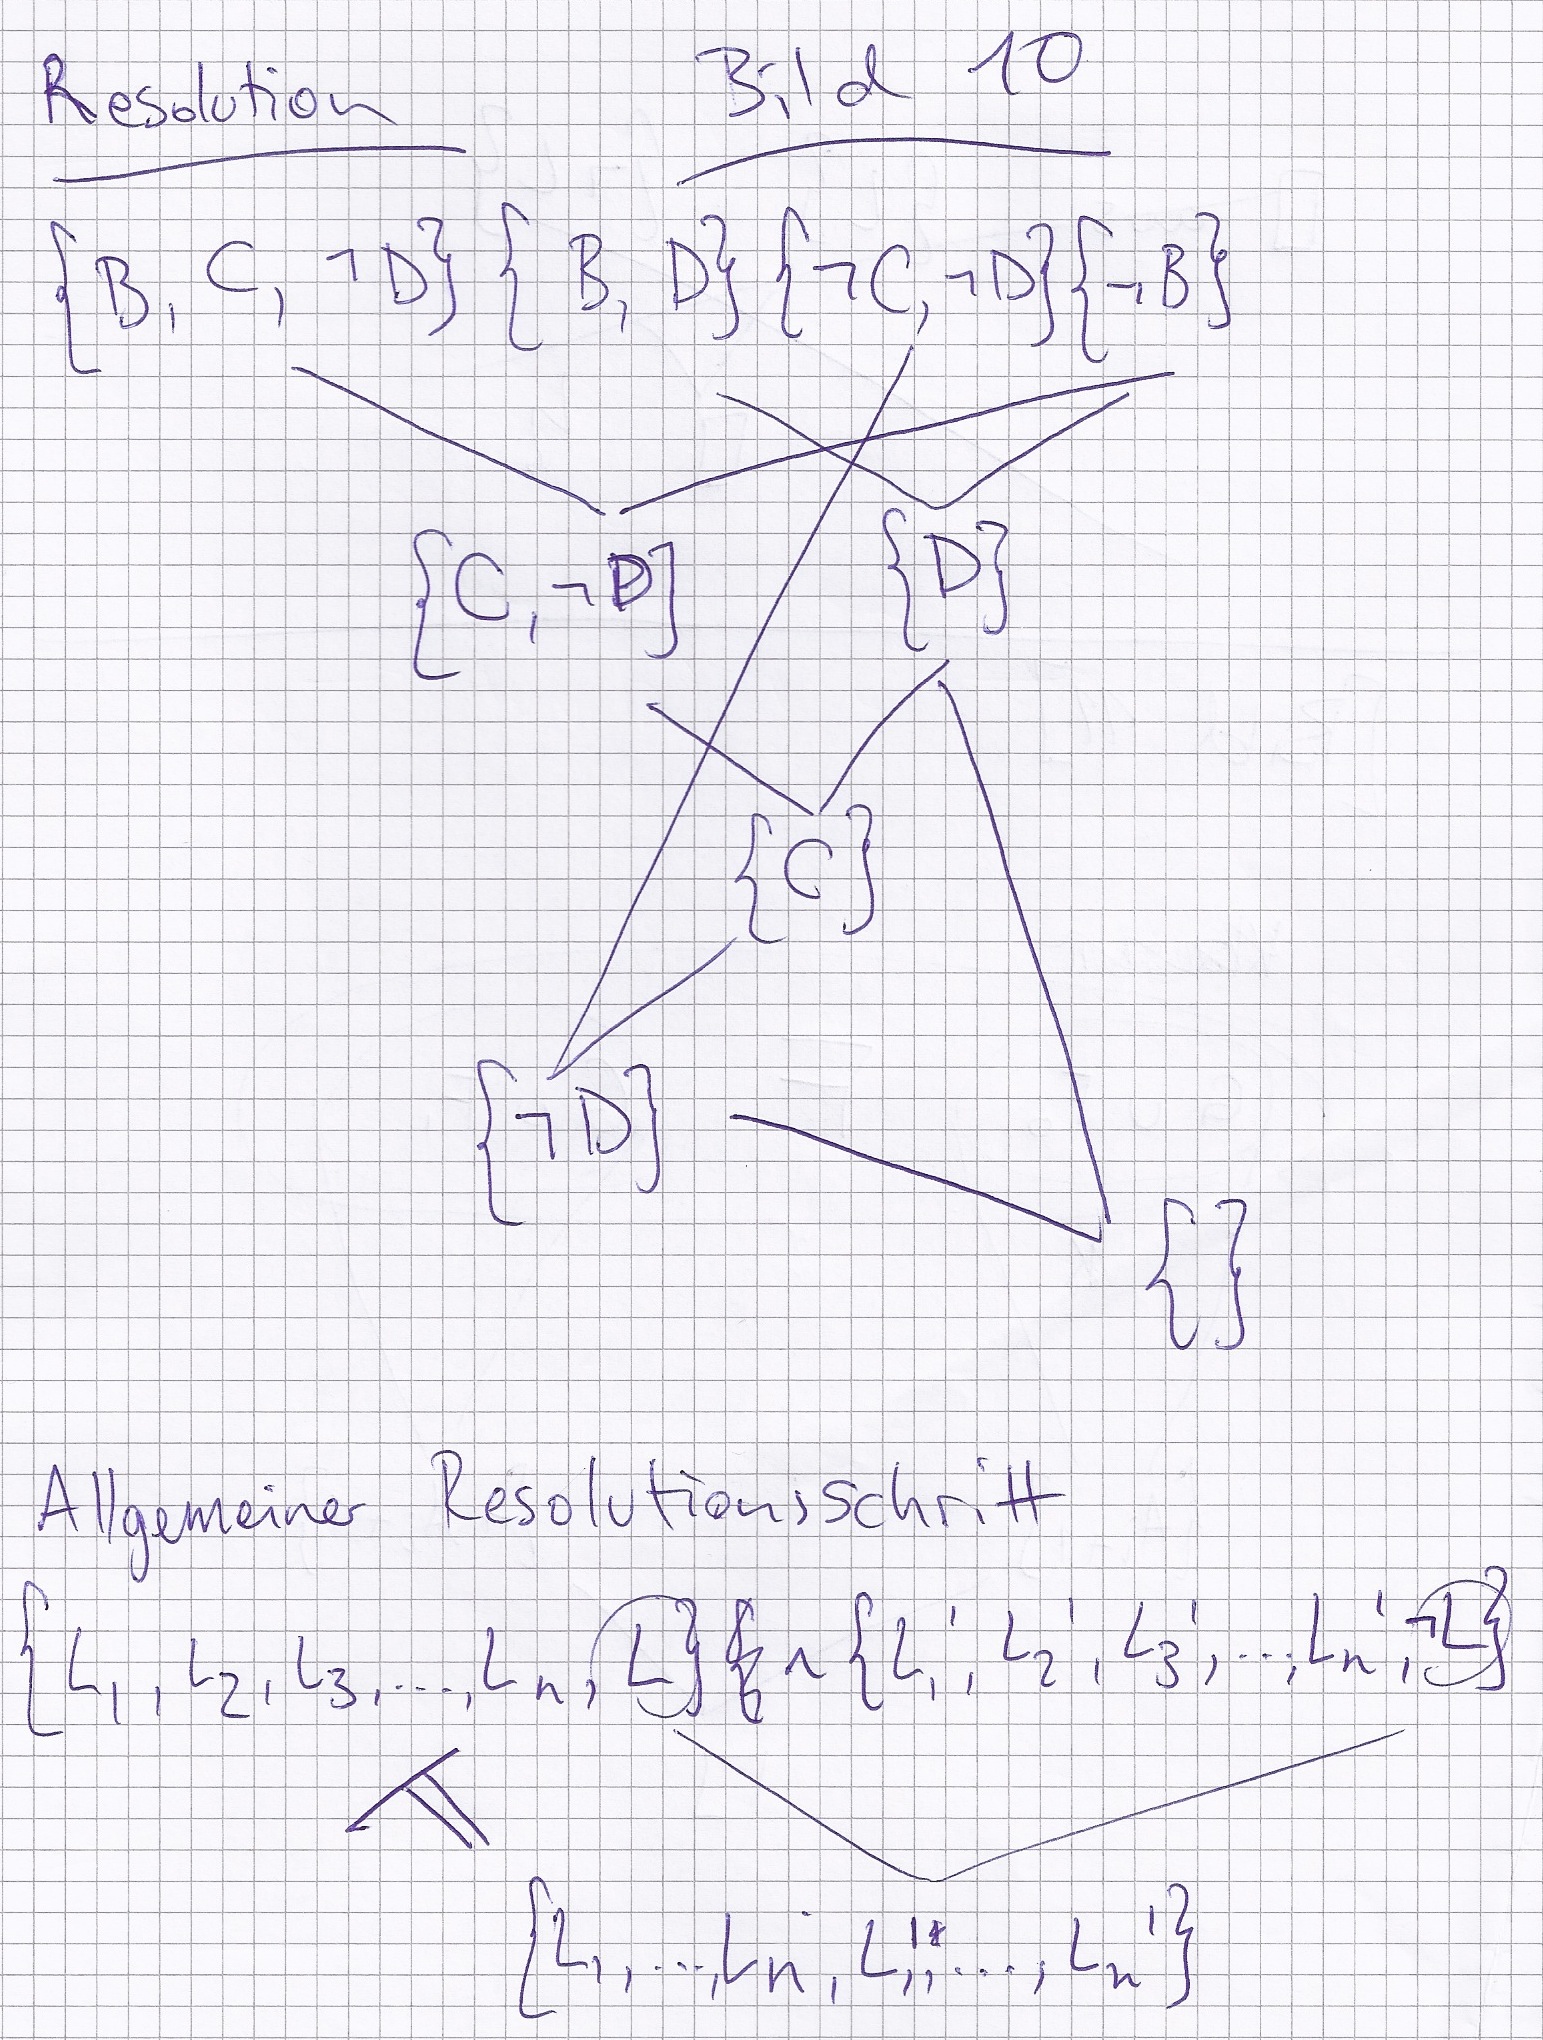 Resolution Bild 10
{B, C, ¬D} {B, D} {¬C, ¬D} {¬B}
{C, ¬D} {D}
{C}
{¬D}
{}
Allgemeiner Resolutionsschritt
{L₁, L₂, L₃, ..., Lₙ, L} ∧ {L₁', L₂', L₃', ..., Lₙ', ¬L}
{L₁, ..., Lₙ, L₁', ..., Lₙ'}